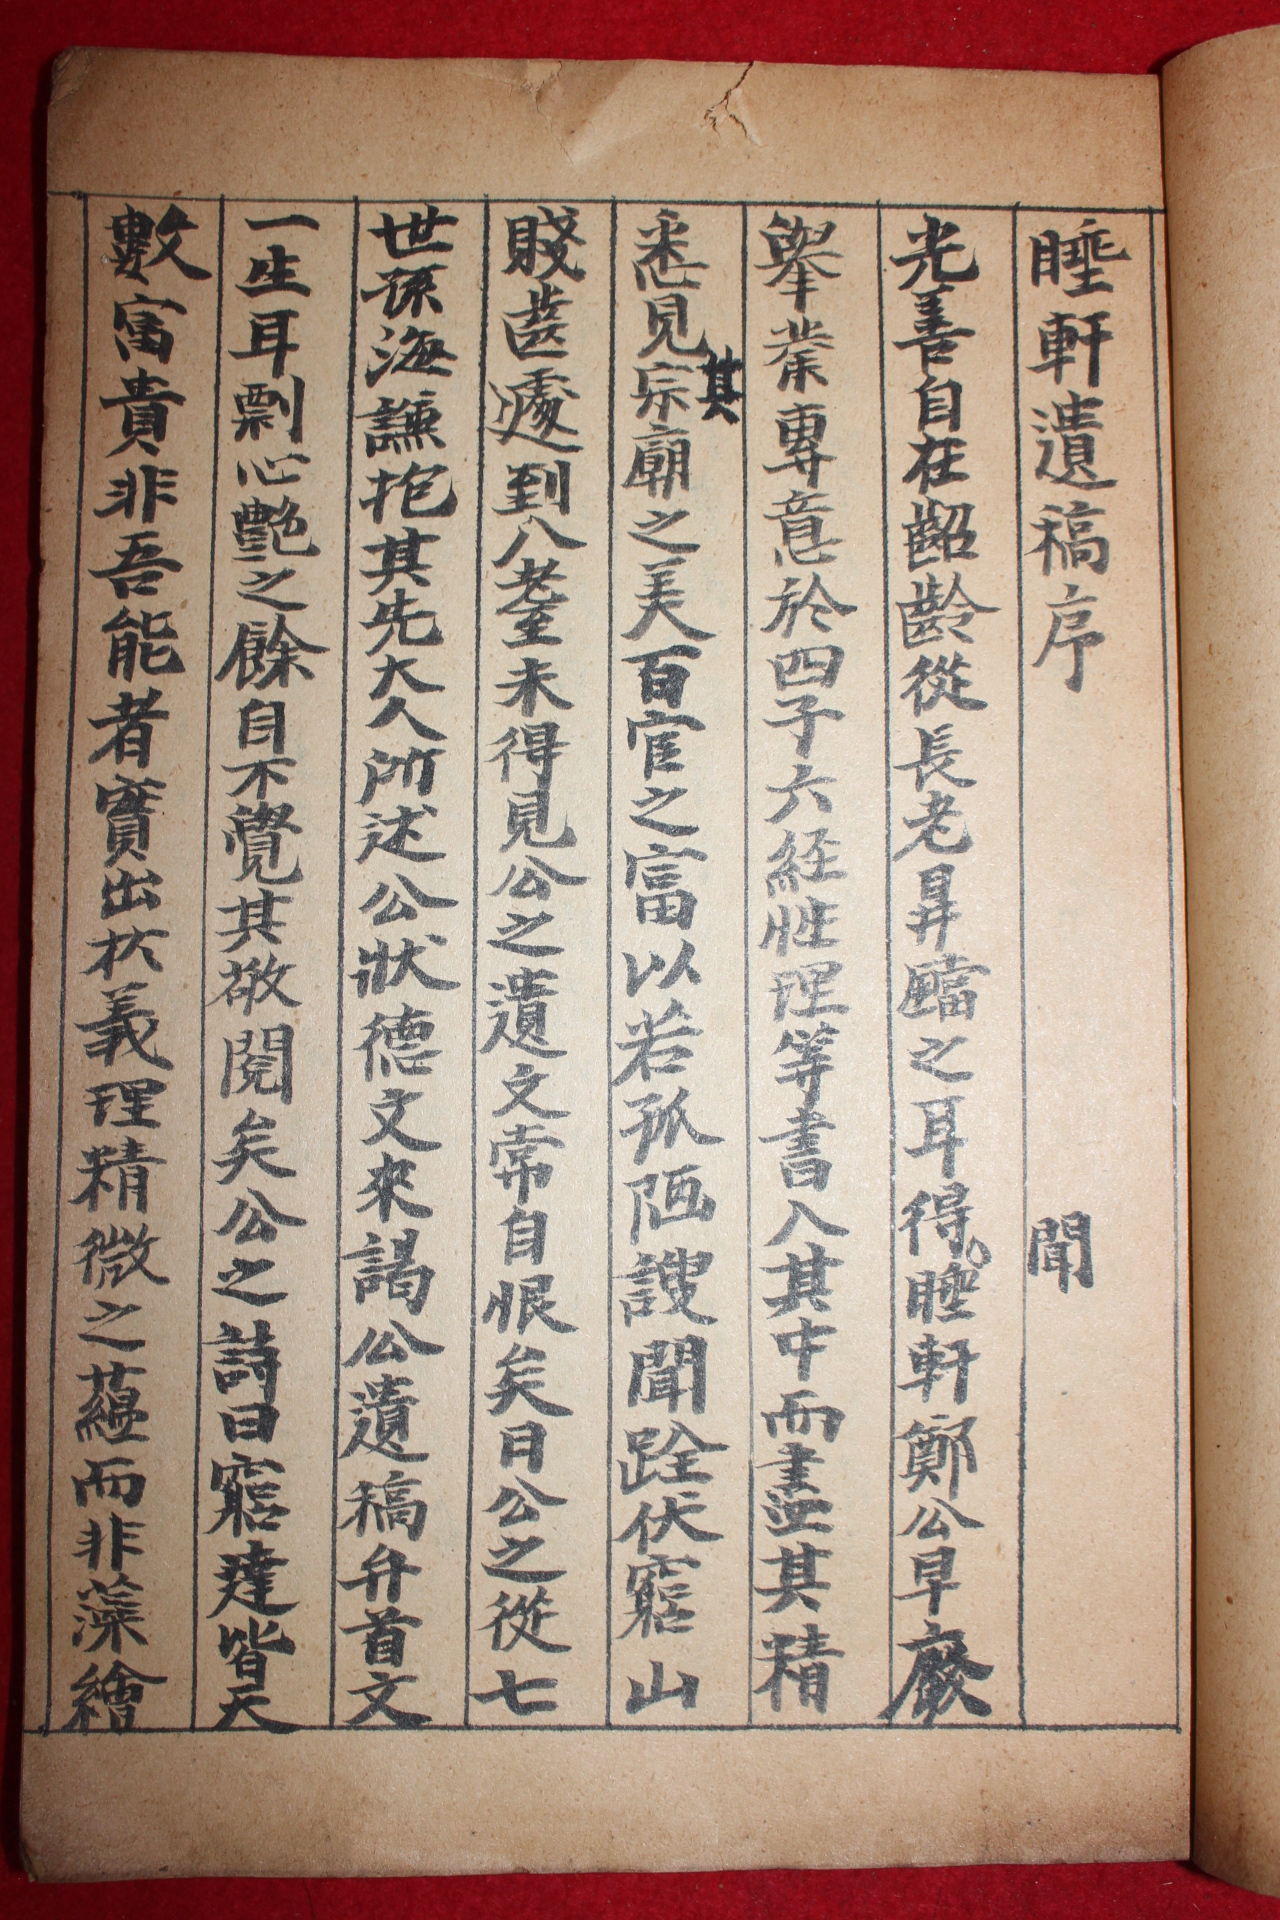 睡軒遺稿序
光善自在齠齡從長老之耳得聞睡軒鄭公早廢
擧業專意於四子六経性理等書入其中而盡其精
悉見其宗廟之美百官之富以若孤陋謏聞跧伏窮山
賤齒遽到八耋未得見公之遺文常自恨矣日公之從七
世孫海謙抱其先大人所述公狀德文來謁公遺稿弁首文
一生耳剽心艶之餘自不覺其敬閱矣公之詩曰窮達皆天
數富貴非吾能者實出於義理精微之蘊而非藻繪